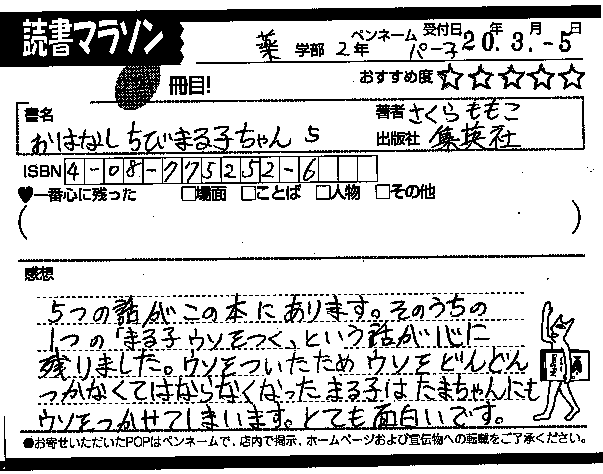 読書マラソン
薬 学部 2年 ペンネーム パー子 受付日 20年 3月 -5日
冊目! おすすめ度☆☆☆☆☆
書名 おはなしちびまる子ちゃん 5
著者 さくらももこ
出版社 集英社
ISBN 4-08-775252-6
♥一番心に残った □場面 □ことば □人物 □その他
感想
5つの話がこの本にあります。そのうちの
1つの「まる子ウソをつく、という話が心に
残りました。ウソをついたためウソをどんどん
つかなくてはならなくなったまる子はたまちゃんにも
ウソをつかせてしまいます。とても面白いです。
●お寄せいただいたPOPはペンネームで、店内で掲示、ホームページおよび宣伝物への転載をご了承ください。